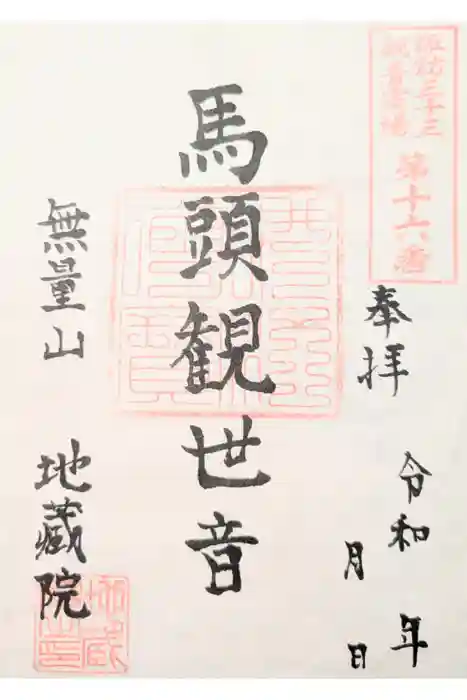 諏訪三十三
観音霊場
第十六番
奉拝
令和 年
月 日
馬頭観世音
無量山
地蔵院